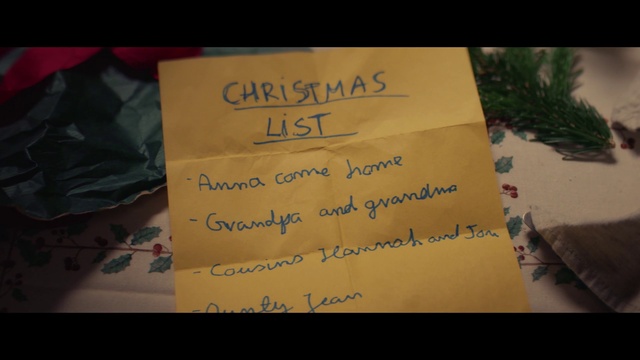 CHRISTMAS
LIST
- Anna come home
- Grandpa and grandma
- Cousins Hannah and Jon
- Aunty Jean